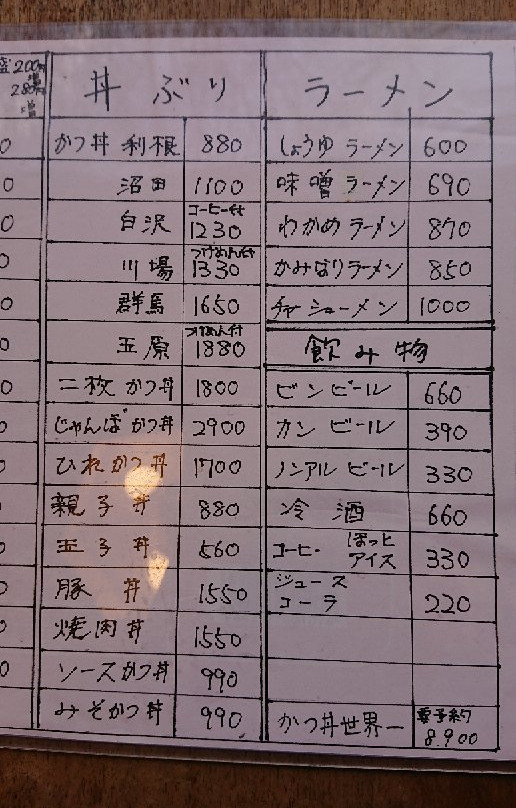 盛200円増
280円増
丼ぶり
かつ丼 利根 880
沼田 1100
白沢 コーヒー付 1230
川場 つけめん付 1330
群馬 1650
玉原 つけめん付 1880
二枚かつ丼 1800
じゃんぼかつ丼 2900
ひれかつ丼 1700
親子丼 880
玉子丼 560
豚丼 1550
焼肉丼 1550
ソースかつ丼 990
みそかつ丼 990
ラーメン
しょうゆラーメン 600
味噌ラーメン 690
わかめラーメン 870
かみなりラーメン 850
チャーシューメン 1000
飲み物
ビンビール 660
カンビール 390
ノンアルビール 330
冷酒 660
コーヒー ほっと アイス 330
ジュース コーラ 220
かつ丼世界一 要予約 8.900